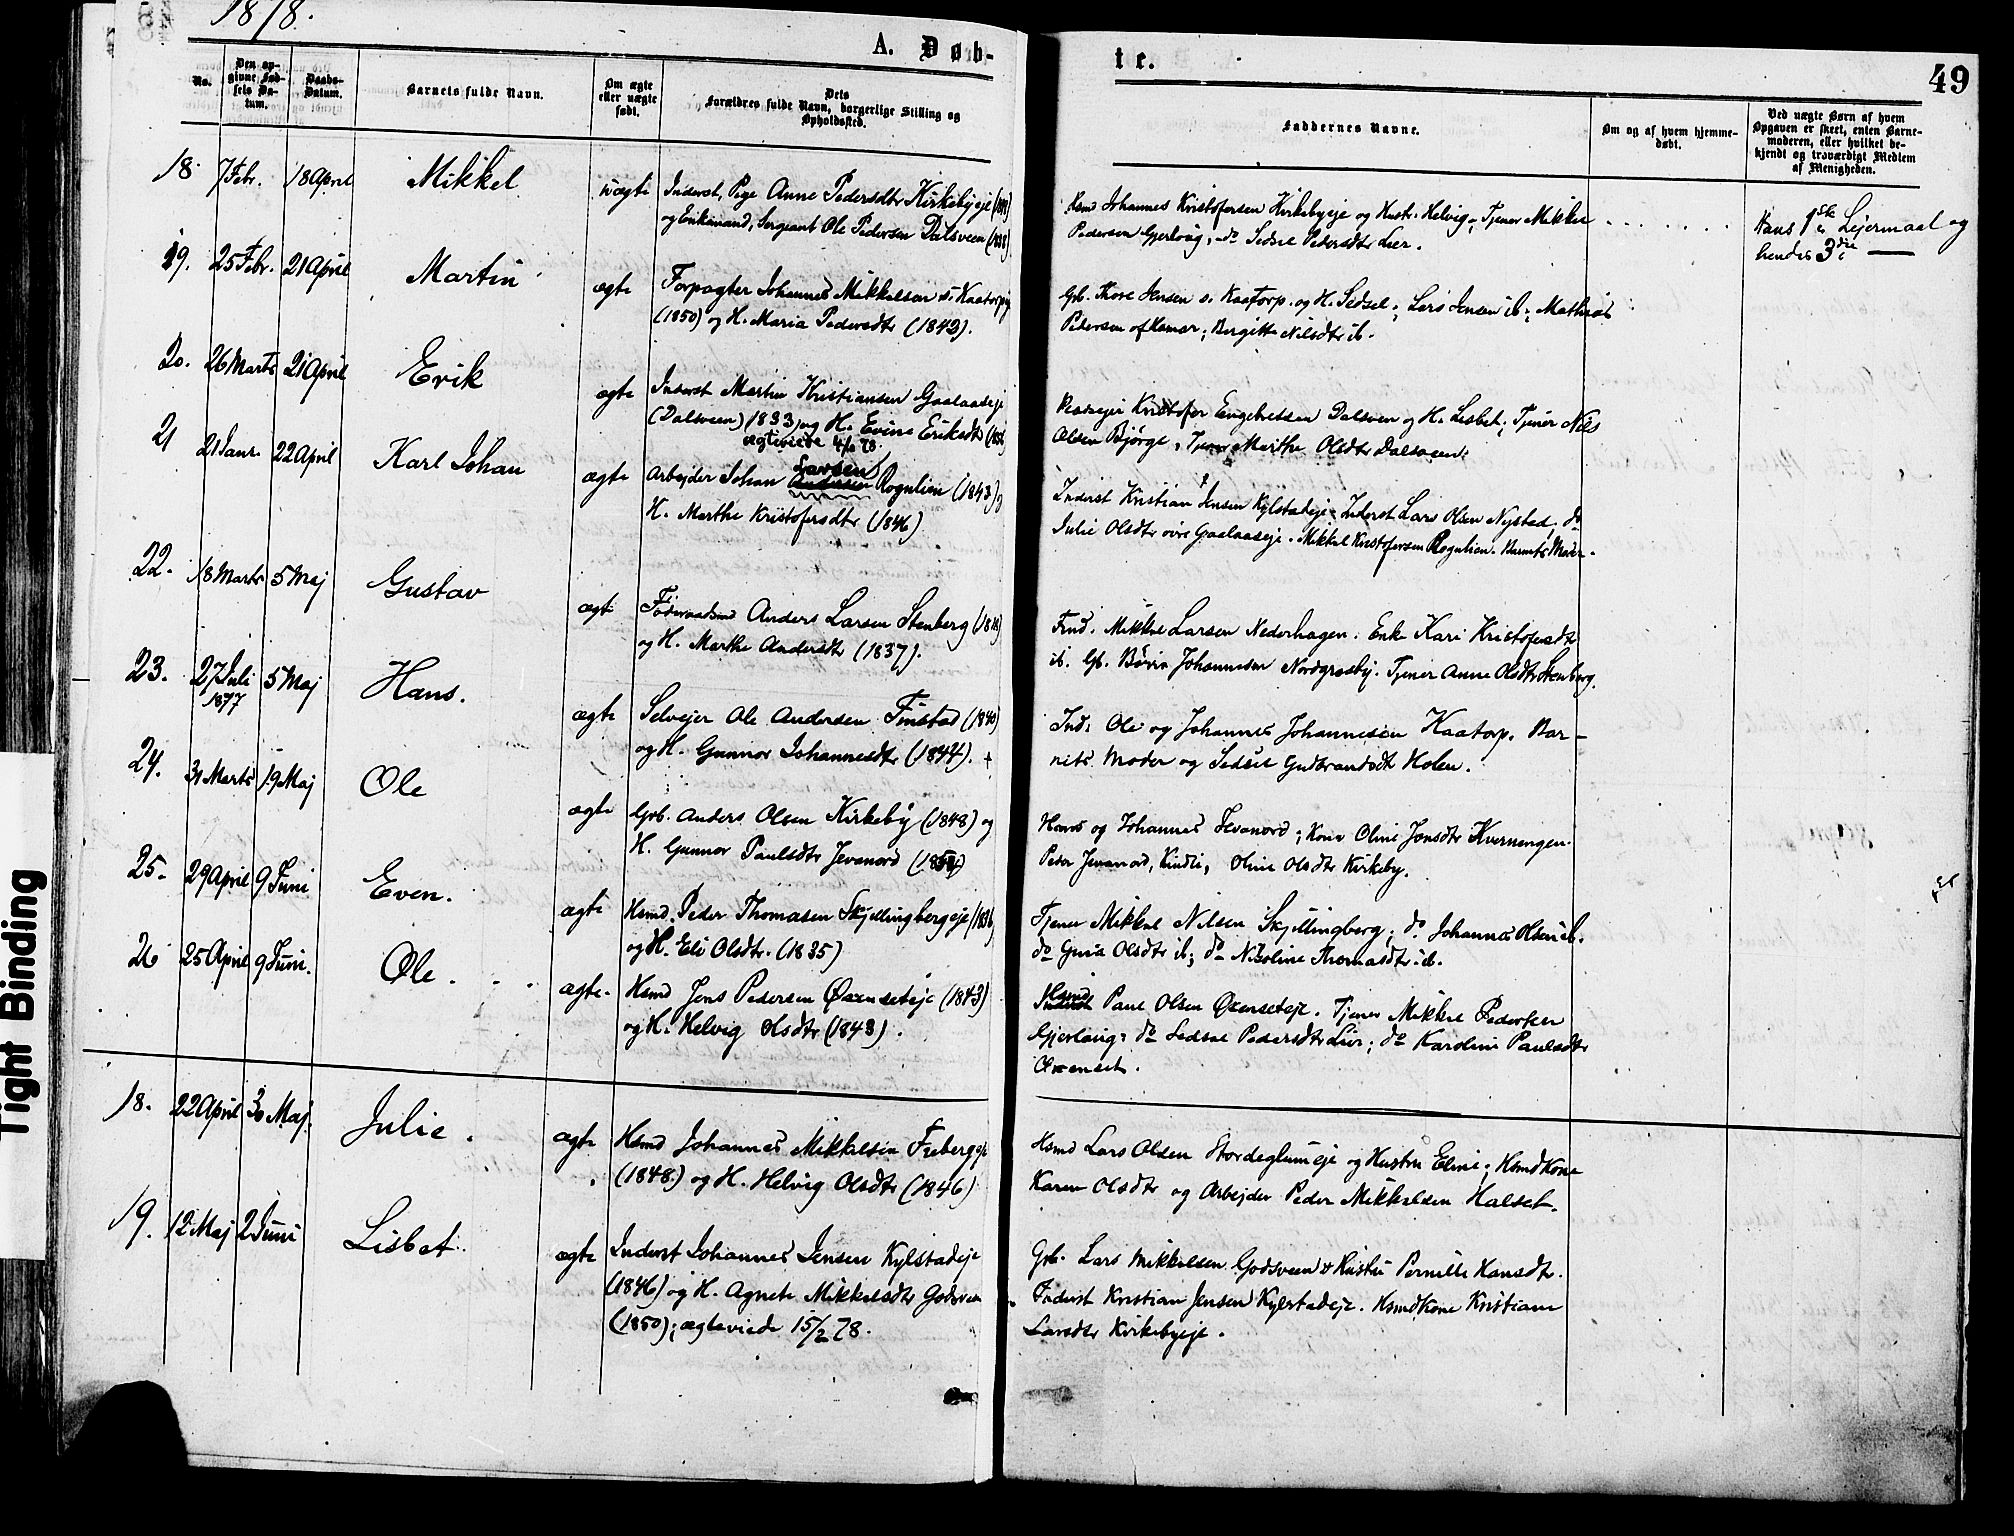 1878.
A. Døb-
te.
49
No.
Den opgivne Fødsels Datum.
Daabs-Datum.
Barnets fulde Navn.
Om ægte eller uægte født.
Dets Forældres fulde Navn, borgerlige Stilling og Opholdssted.
Faddernes Navne.
Om og af hvem hjemmedøbt.
Ved uægte Børn af hvem Opgaven er skeet, enten Barnemoderen, eller hvilket bekjendt og troværdigt Medlem af Menigheden.
18. 7 Febr. 18 April Mikkel uægte Inderst, Pige Anne Pedersdtr Kirkebyeje
og Enkemand, Sergeant Ole Pedersen Dalsveen
Hsmd Johannes Kristofersen Kirkebyeje og Hustr. Helvig; Tjener Mikkel
Pedersen Gjerlaug; do Sedsel Pedersdtr Lier.
Hans 1ste Lejermaal og
hendes 3die —
19. 25 Febr. 21 April Martin ægte Forpagter Johannes Mikkelsen s. Kaatorp
(1850) og H. Maria Pedersdtr (1843).
Gb. Thore Jensen s. Kaatorp. og H. Sedsel; Lars Jensen ib; Mathias
Pedersen af Hamar; Birgitte Nilsdtr ib.
20. 26 Marts 21 April Erik ægte Inderst Martin Kristiansen Gaalaaseje
(Dalsveen) 1833 og H. Evine Eriksdtr
ægteviede
Kristofer Engebretsen Dalsveen og H. Lisbet; Tjener Nils
Olsen Bjørge, Tjener Marthe Olsdtr Dalsveen.
21 21 Janr. 22 April Karl Johan ægte Arbejder Johan Andersen Larsen Rognlien (1843) og
H. Marthe Kristofersdtr (1846)
Inderst Kristian Jensen Kylstadeje Inderst Lars Olsen Nystad; do
Julie Olsdtr øvre Gaalaaseje. Mikkel Kristofersen Rognlien. Barnets Moder.
22. 18 Marts 5 Maj Gustav ægte Føderaadsmd Anders Larsen Stenberg
og H. Marthe Andersdtr (1837).
Mikkel Larsen Nederhagen. Enke Kari Kristofersdtr
ib. Gb. Johannesen Nordgrosby. Tjener Anne Olsdtr Stenberg.
23. 27 Juli 5 Maj Hans. ægte Selvejer Ole Andersen Finstad (1840)
1877
og H. Gunnor Johannesdtr (1844). +
Ind: Ole og Johannes Johannesen Kaatorp. Bar-
nets Moder og Sedsel Gudbrandsdt Holen.
24. 31 Marts 19 Maj Ole ægte Grb. Anders Olsen Kirkeby (1848) og
H. Gunnor Paulsdtr Jevanord
Hans og Johannes Jevanord; Kone Oline Jonsdtr Kverningen.
Peder Jevanord, Oline Olsdtr Kirkeby.
25. 29 April 9 Juni Even. ægte Hsmd. Peder Thomasen Skjellingbergeje
og H. Eli Olsdtr. (1835)
Tjener Mikkel Nilsen Skjellingberg; do Johannes Olsen ib.
do Guria Olsdtr ib; do Nikoline Thomasdtr ib.
26 25 April 9 Juni. Ole. ægte. Hsmd Jens Pedersen Øxenseteje (1843)
og H. Helvig Olsdtr (1843).
Hsmd Paul Olsen Øxenseteje. Tjener Mikkel Pedersen
Gjerlaug; do Sedsel Pedersdtr Lier; do Karoline Paulsdtr
Øxenset.
18. 22 April 30 Maj. Julie. ægte Hsmd Johannes Mikkelsen Frebergeje
(1848.) og H. Helvig Olsdtr (1846)
Hsmd Lars Olsen Stordeglumeje og Hustru Eline; Hsmdkone
Karen Olsdtr og Arbejder Peder Mikkelsen Halset.
19. 12 Maj 2 Juni Lisbet. ægte Inderst Johannes Jensen Kylstadeje
(1846) og H. Agnete Mikkelsdtr Godsveen
(1850); ægteviede 15/2 78.
Grb. Lars Mikkelsen Godsveen & Hustru Pernille Hansdtr.
Inderst Kristian Jensen Kylstadeje. Hsmdkone Kristiane
Larsdtr Kirkebyeje.
Tight Binding